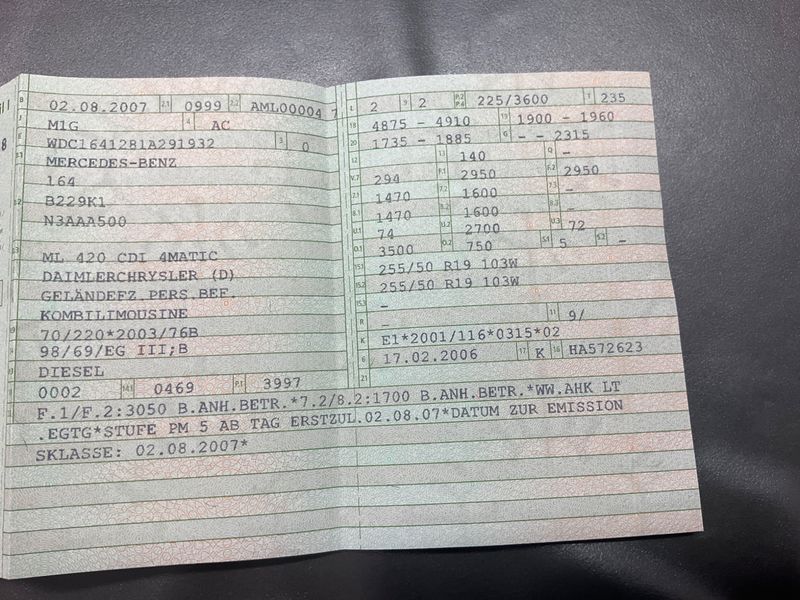 B 02.08.2007 2.1 0999 2.2 AML00004 7
J M1G 4 AC
E WDC1641281A291932 3 0
MERCEDES-BENZ
164
B229K1
N3AAA500
ML 420 CDI 4MATIC
DAIMLERCHRYSLER (D)
GELÄNDEFZ.PERS.BEF.
KOMBILIMOUSINE
70/220*2003/76B
98/69/EG III;B
DIESEL
0002 14.1 0469 P.1 3997
L 2 9 2 P.2 P.4 225/3600 T 235
18 4875 - 4910 19 1900 - 1960
20 1735 - 1885 G - - 2315
12 13 140 Q -
V.7 294 F.1 2950 F.2 2950
7.1 1470 7.2 1600 7.3 -
8.1 1470 8.2 1600 8.3 -
U.1 74 U.2 2700 U.3 72
O.1 3500 O.2 750 S.1 5 S.2 -
15.1 255/50 R19 103W
15.2 255/50 R19 103W
15.3 -
R - 11 9/
K E1*2001/116*0315*02
6 17.02.2006 17 K 16 HA572623
21
F.1/F.2:3050 B.ANH.BETR.*7.2/8.2:1700 B.ANH.BETR.*WW.AHK LT
.EGTG*STUFE PM 5 AB TAG ERSTZUL.02.08.07*DATUM ZUR EMISSION
SKLASSE: 02.08.2007*